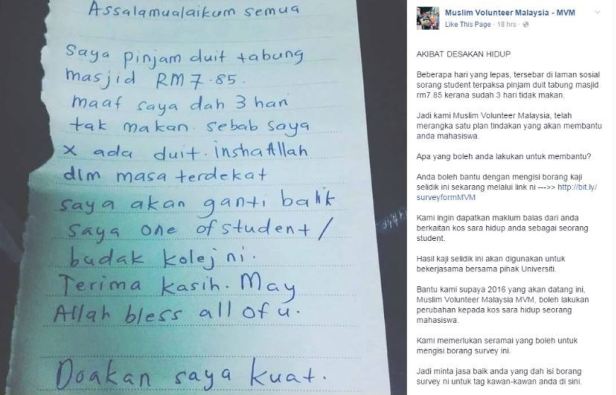 Assalamualaikum semua
Saya pinjam duit tabung
masjid RM7.85.
maaf saya dah 3 hari
tak makan. sebab saya
x ada duit. inshaAllah
dlm masa terdekat
saya akan ganti balik
saya one of student/
budak kolej ni.
Terima kasih. May
Allah bless all of u.
Doakan saya kuat.
Muslim Volunteer Malaysia - MVM
Like This Page · 18 hrs ·
AKIBAT DESAKAN HIDUP
Beberapa hari yang lepas, tersebar di laman sosial
sorang student terpaksa pinjam duit tabung masjid
rm7.85 kerana sudah 3 hari tidak makan.
Jadi kami Muslim Volunteer Malaysia, telah
merangka satu plan tindakan yang akan membantu
anda mahasiswa.
Apa yang boleh anda lakukan untuk membantu?
Anda boleh bantu dengan mengisi borang kaji
selidik ini sekarang melalui link ni --->> http://bit.ly/
surveyformMVM
Kami ingin dapatkan maklum balas dari anda
berkaitan kos sara hidup anda sebagai seorang
student.
Hasil kaji selidik ini akan digunakan untuk
bekerjasama bersama pihak Universiti.
Bantu kami supaya 2016 yang akan datang ini,
Muslim Volunteer Malaysia MVM, boleh lakukan
perubahan kepada kos sara hidup seorang
mahasiswa.
Kami memerlukan seramai yang boleh untuk
mengisi borang survey ini.
Jadi minta jasa baik anda yang dah isi borang
survey ni untuk tag kawan-kawan anda di sini.